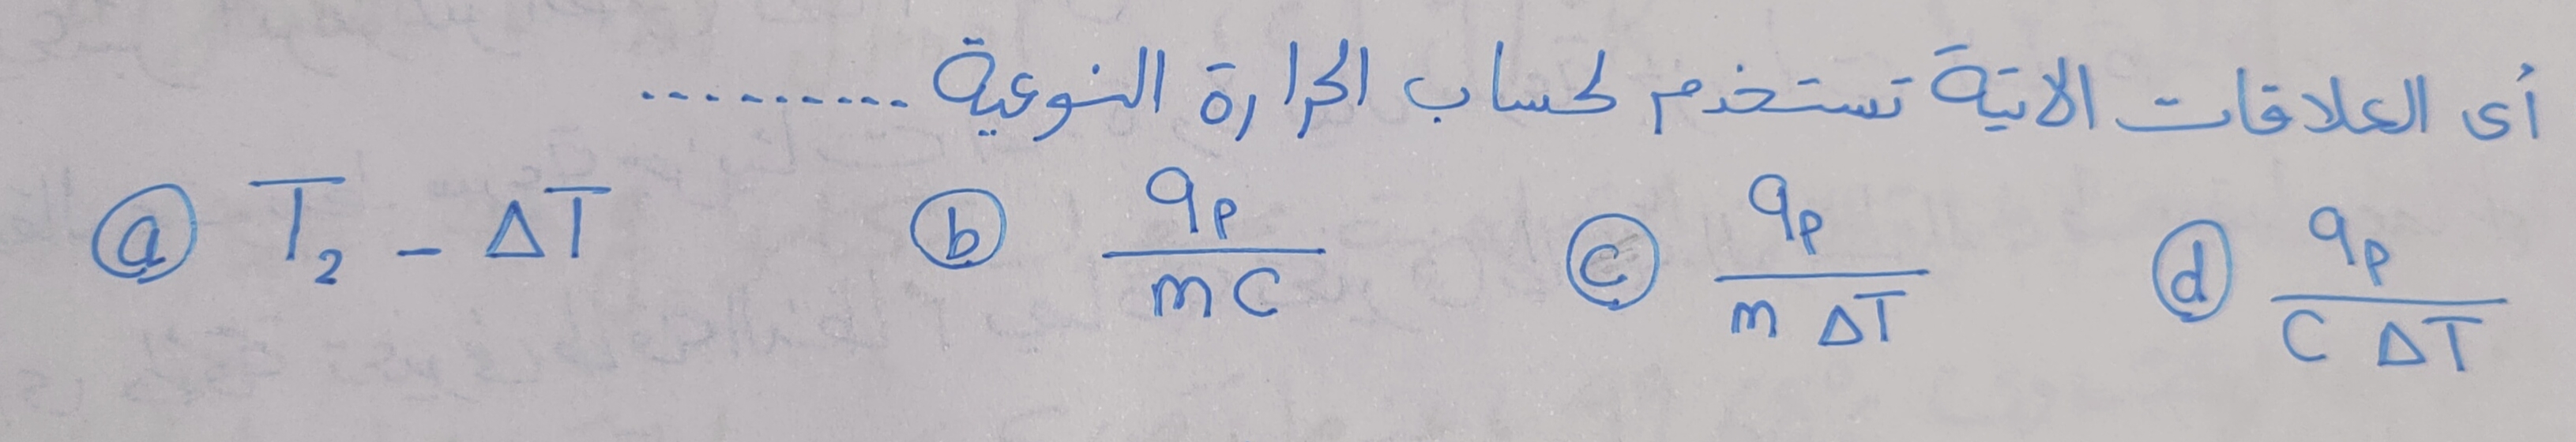 أى العلاقات الاتية تستخدم لحساب الحرارة النوعية ..........
ⓐ T₂ - ΔT ⓑ qₚ / mC ⓒ qₚ / m ΔT ⓓ qₚ / C ΔT